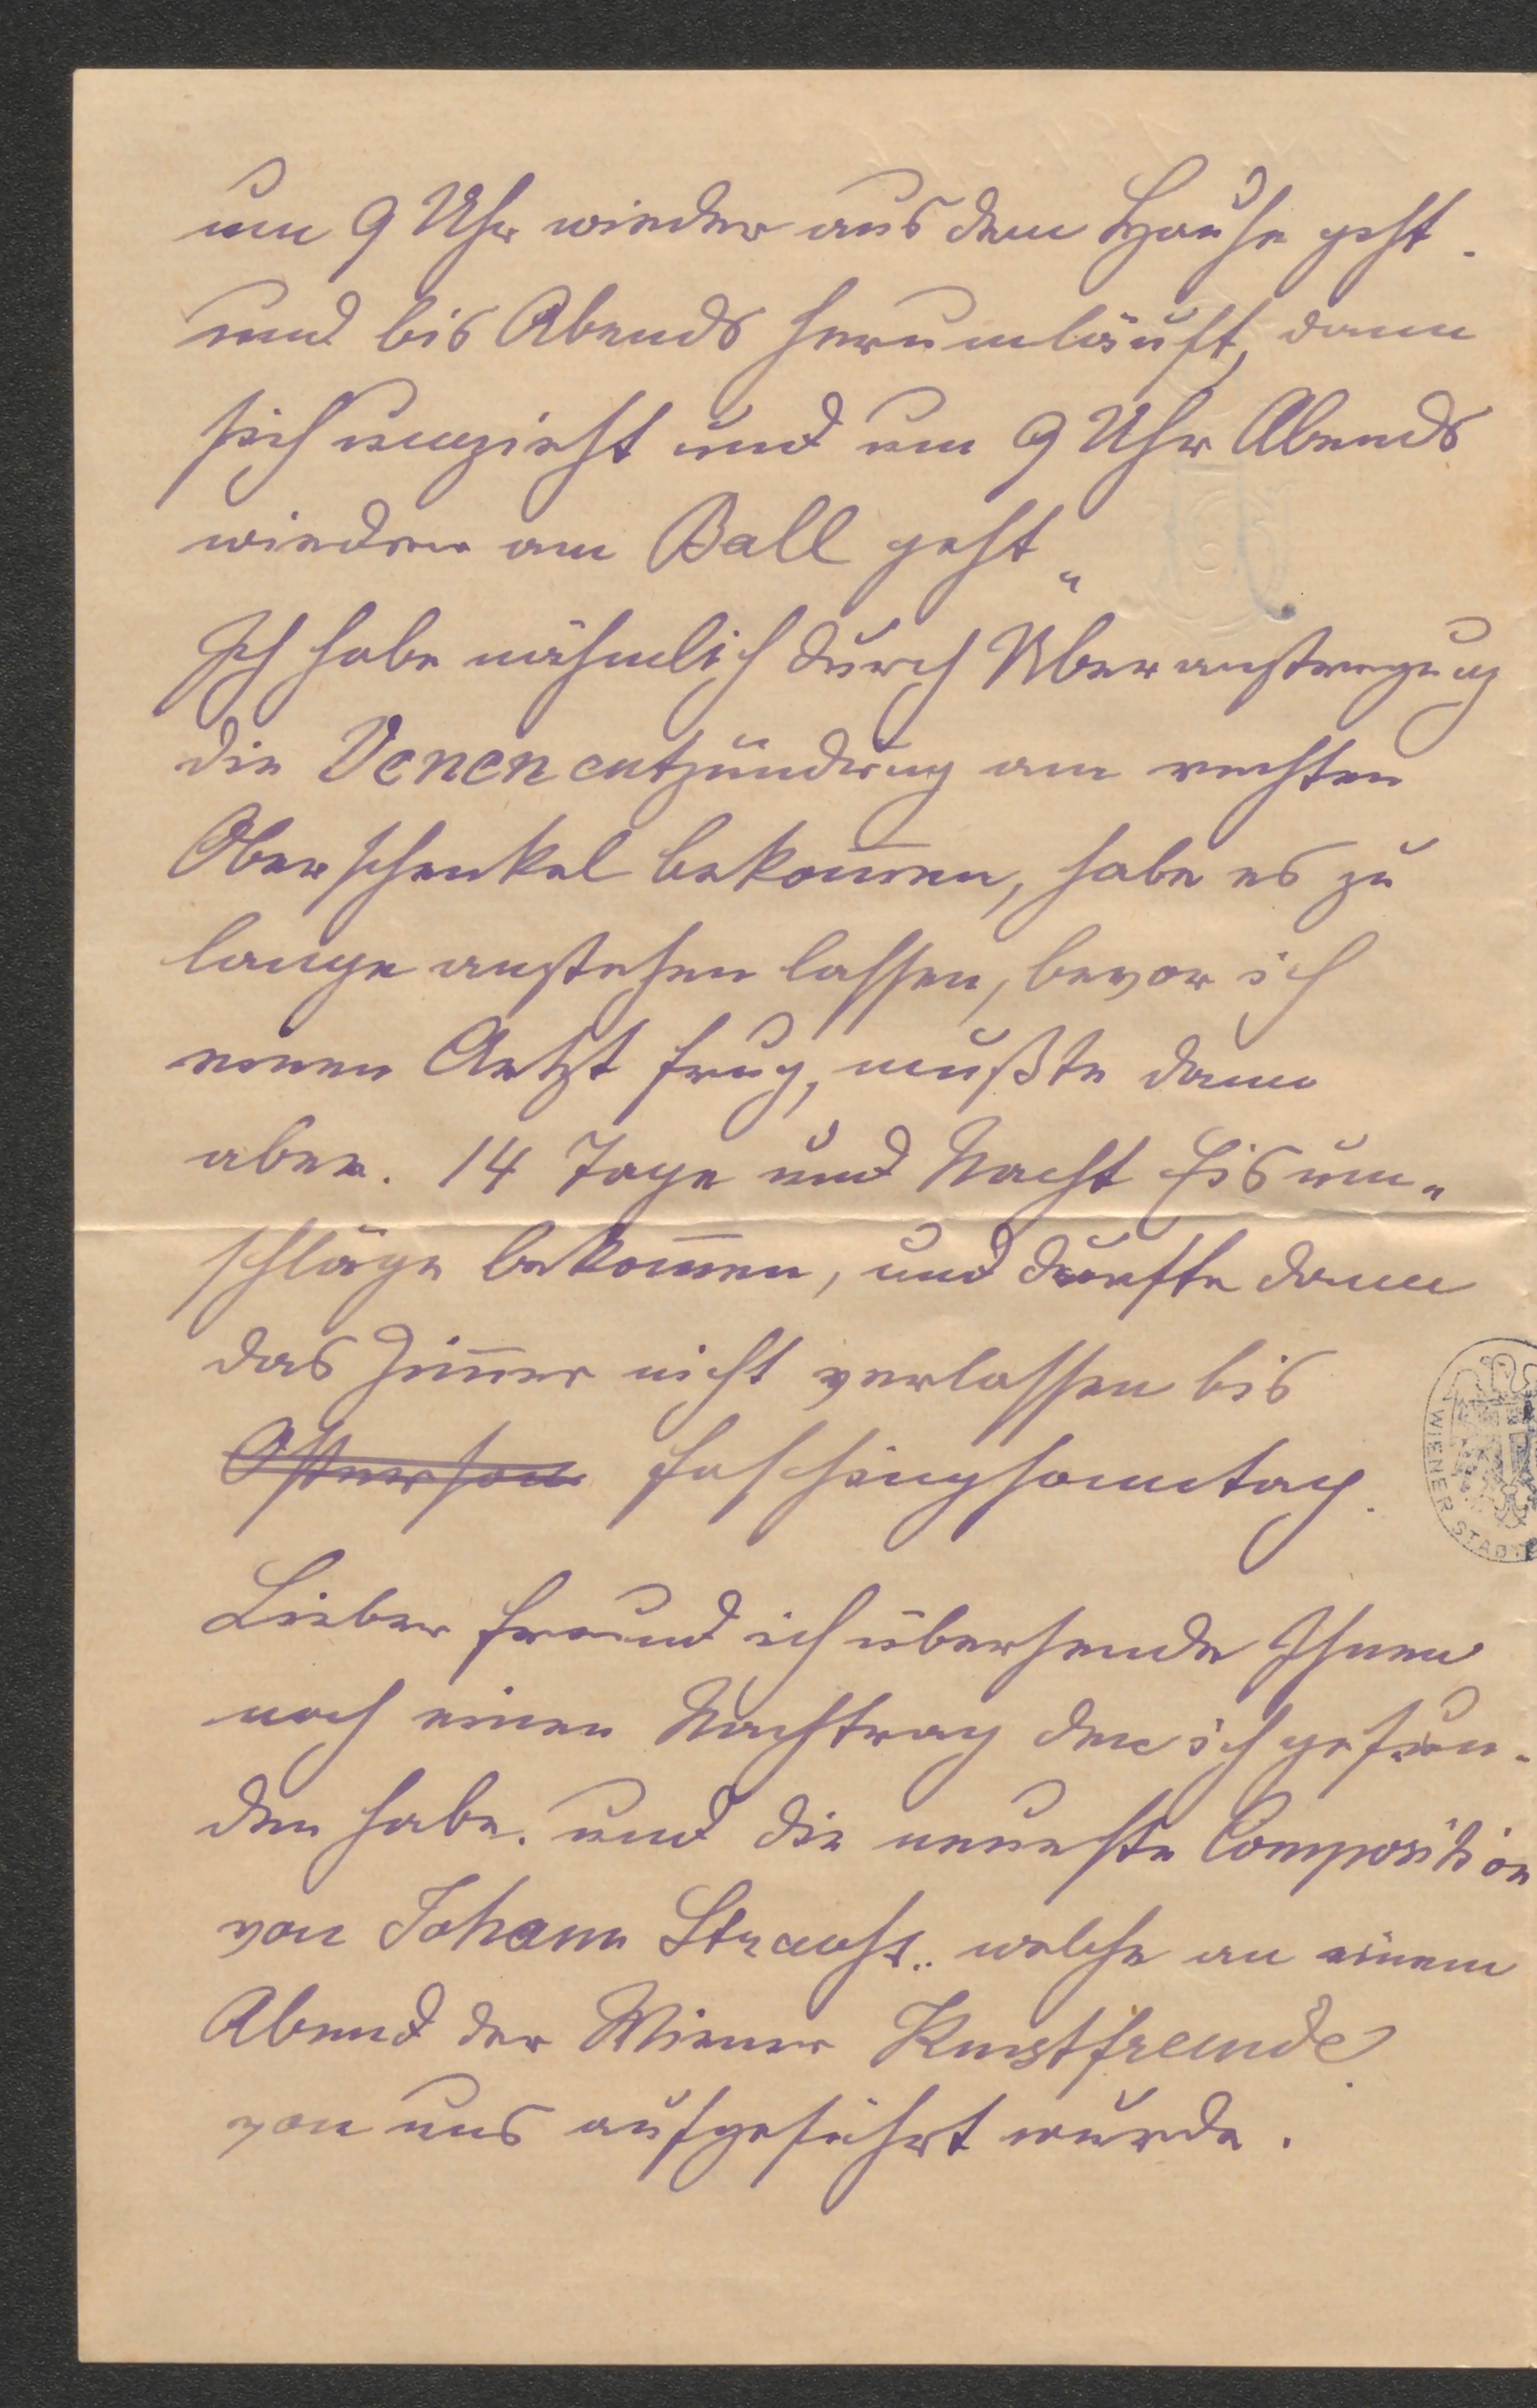 um 9 Uhr wieder aus dem Hause geht.
und bis Abends herumläuft, dann
sich umzieht und um 9 Uhr Abends
wieder am Ball geht„
Ich habe nähmlich durch Überanstregung
die Venenentzündung am rechten
Oberschenkel bekom̅en, habe es zu
lange anstehen lassen, bevor ich
einen Artzt frug, mußte dann
aber. 14 Tage und Nacht Eisum„
schläge bekom̅en, und durfte dann
das Zim̅er nicht verlassen bis
Osterson Faschingsonntag.
Lieber Freund ich übersende Ihnen
noch einen Nachtrag den ich gefun-
den habe. und die neueste Composition
von Johann Strauss.. welche an einem
Abend der Wiener Kunstfreunde
von uns aufgeführt wurde.
WIENER STADT